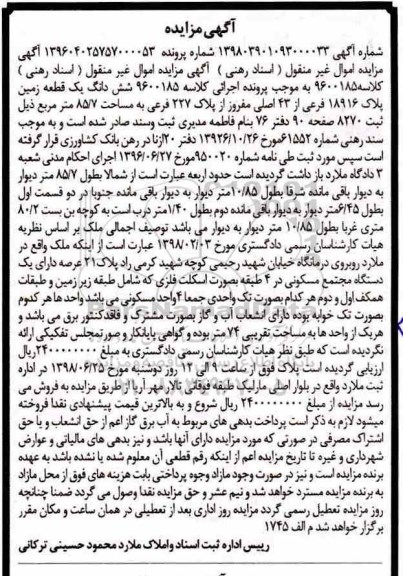 آگهی مزایده
شماره آگهی ۱۳۹۸۰۳۹۰۱۰۹۳۰۰۰۰۳۳ شماره پرونده ۱۳۹۶۰۴۰۲۵۷۵۷۰۰۰۰۵۳ آگهی
مزایده اموال غیر منقول ( اسناد رهنی ) آگهی مزایده اموال غیر منقول ( اسناد رهنی )
کلاسه۹۶۰۰۱۸۵ به موجب پرونده اجرائی کلاسه ۹۶۰۰۱۸۵ شش دانگ یک قطعه زمین
پلاک ۱۸۹۱۶ فرعی از ۴۳ اصلی مفروز از پلاک ۲۲۷ فرعی به مساحت ۸۵/۷ متر مربع ذیل
ثبت ۸۲۷۰ صفحه ۹۰ دفتر ۷۶ بنام فاطمه مدیری ثبت وسند صادر شده است و به موجب
سند رهنی شماره ۶۱۵۵۲مورخ ۱۳۹۲۶/۱۰/۲۶ دفتر ۲۰ازنا در رهن بانک کشاورزی قرار گرفته
است سپس مورد ثبت طی نامه شماره ۹۵۰۰۲۰مورخ ۱۳۹۶/۰۶/۲۷ اجرای احکام مدنی شعبه
۳ دادگاه ملارد باز داشت گردیده است حدود اربعه عبارت است از شمالا بطول ۸۵/۷ متر دیوار
به دیوار باقی مانده شرقا بطول ۱۰/۸۵متر دیوار به دیوار باقی مانده جنوبا در دو قسمت اول
بطول ۶/۴۵متر دیوار به دیوار باقی مانده دوم بطول ۱/۴۰متر درب است به کوچه بن بست ۸۰/۲
متری غربا بطول ۱۰/۸۵ متر دیوار به دیوار می باشد توصیف اجمالی ملک بر اساس نظریه
هیات کارشناسان رسمی دادگستری مورخ ۱۳۹۸/۰۲/۰۳ عبارت است از اینکه ملک واقع در
ملارد روبروی درمانگاه خیابان شهید رحیمی کوچه شهید کرمی راد پلاک۲۱ عرصه دارای یک
دستگاه مجتمع مسکونی در ۴ طبقه بصورت اسکلت فلزی که شامل طبقه زیر زمین و طبقات
همکف اول و دوم هر کدام بصورت تک واحدی جمعا ۴واحد مسکونی می باشد واحد ها هر کدوم
بصورت تک خوابه بوده دارای انشعاب آب و گاز بصورت مشترک و فاقدکنتور برق می باشد و
هریک از واحد ها به مساحت تقریبی ۷۴ متر بوده و گواهی پایانکار و صورتمجلس تفکیکی ارائه
نگردیده است که طبق نظر هیات کارشناسان رسمی دادگستری به مبلغ ۲۴۰۰۰۰۰۰۰۰ریال
ارزیابی گردیده است پلاک فوق از ساعت ۹ الی ۱۲ روز دوشنبه مورخ ۱۳۹۸/۰۶/۲۵ در اداره
ثبت ملارد واقع در بلوار اصلی مارلیک طبقه فوقانی تالار مهر آریا از طریق مزایده به فروش می
رسد مزایده از مبلغ ۲۴۰۰۰۰۰۰۰۰ ریال شروع و به بالاترین قیمت پیشنهادی نقدا فروخته
میشود لازم به ذکر است پرداخت بدهی های مربوط به آب برق گاز اعم از حق انشعاب و یا حق
اشتراک مصرفی در صورتی که مورد مزایده دارای آنها باشد و نیز بدهی های مالیاتی و عوارض
شهرداری و غیره تا تاریخ مزایده اعم از اینکه رقم قطعی آن معلوم شده یا نشده باشد به عهده
برنده مزایده است و نیز در صورت وجود مازاد وجوه پرداختی بابت هزینه های فوق از محل مازاد
به برنده مزایده مسترد خواهد شد و نیم عشر و حق مزایده نقدا وصول می گردد ضمنا چنانچه
روز مزایده تعطیل رسمی گردد مزایده روز اداری بعد از تعطیلی در همان ساعت و مکان مقرر
برگزار خواهد شد م الف ۱۷۴۵
رییس اداره ثبت اسناد واملاک ملارد محمود حسینی ترکانی